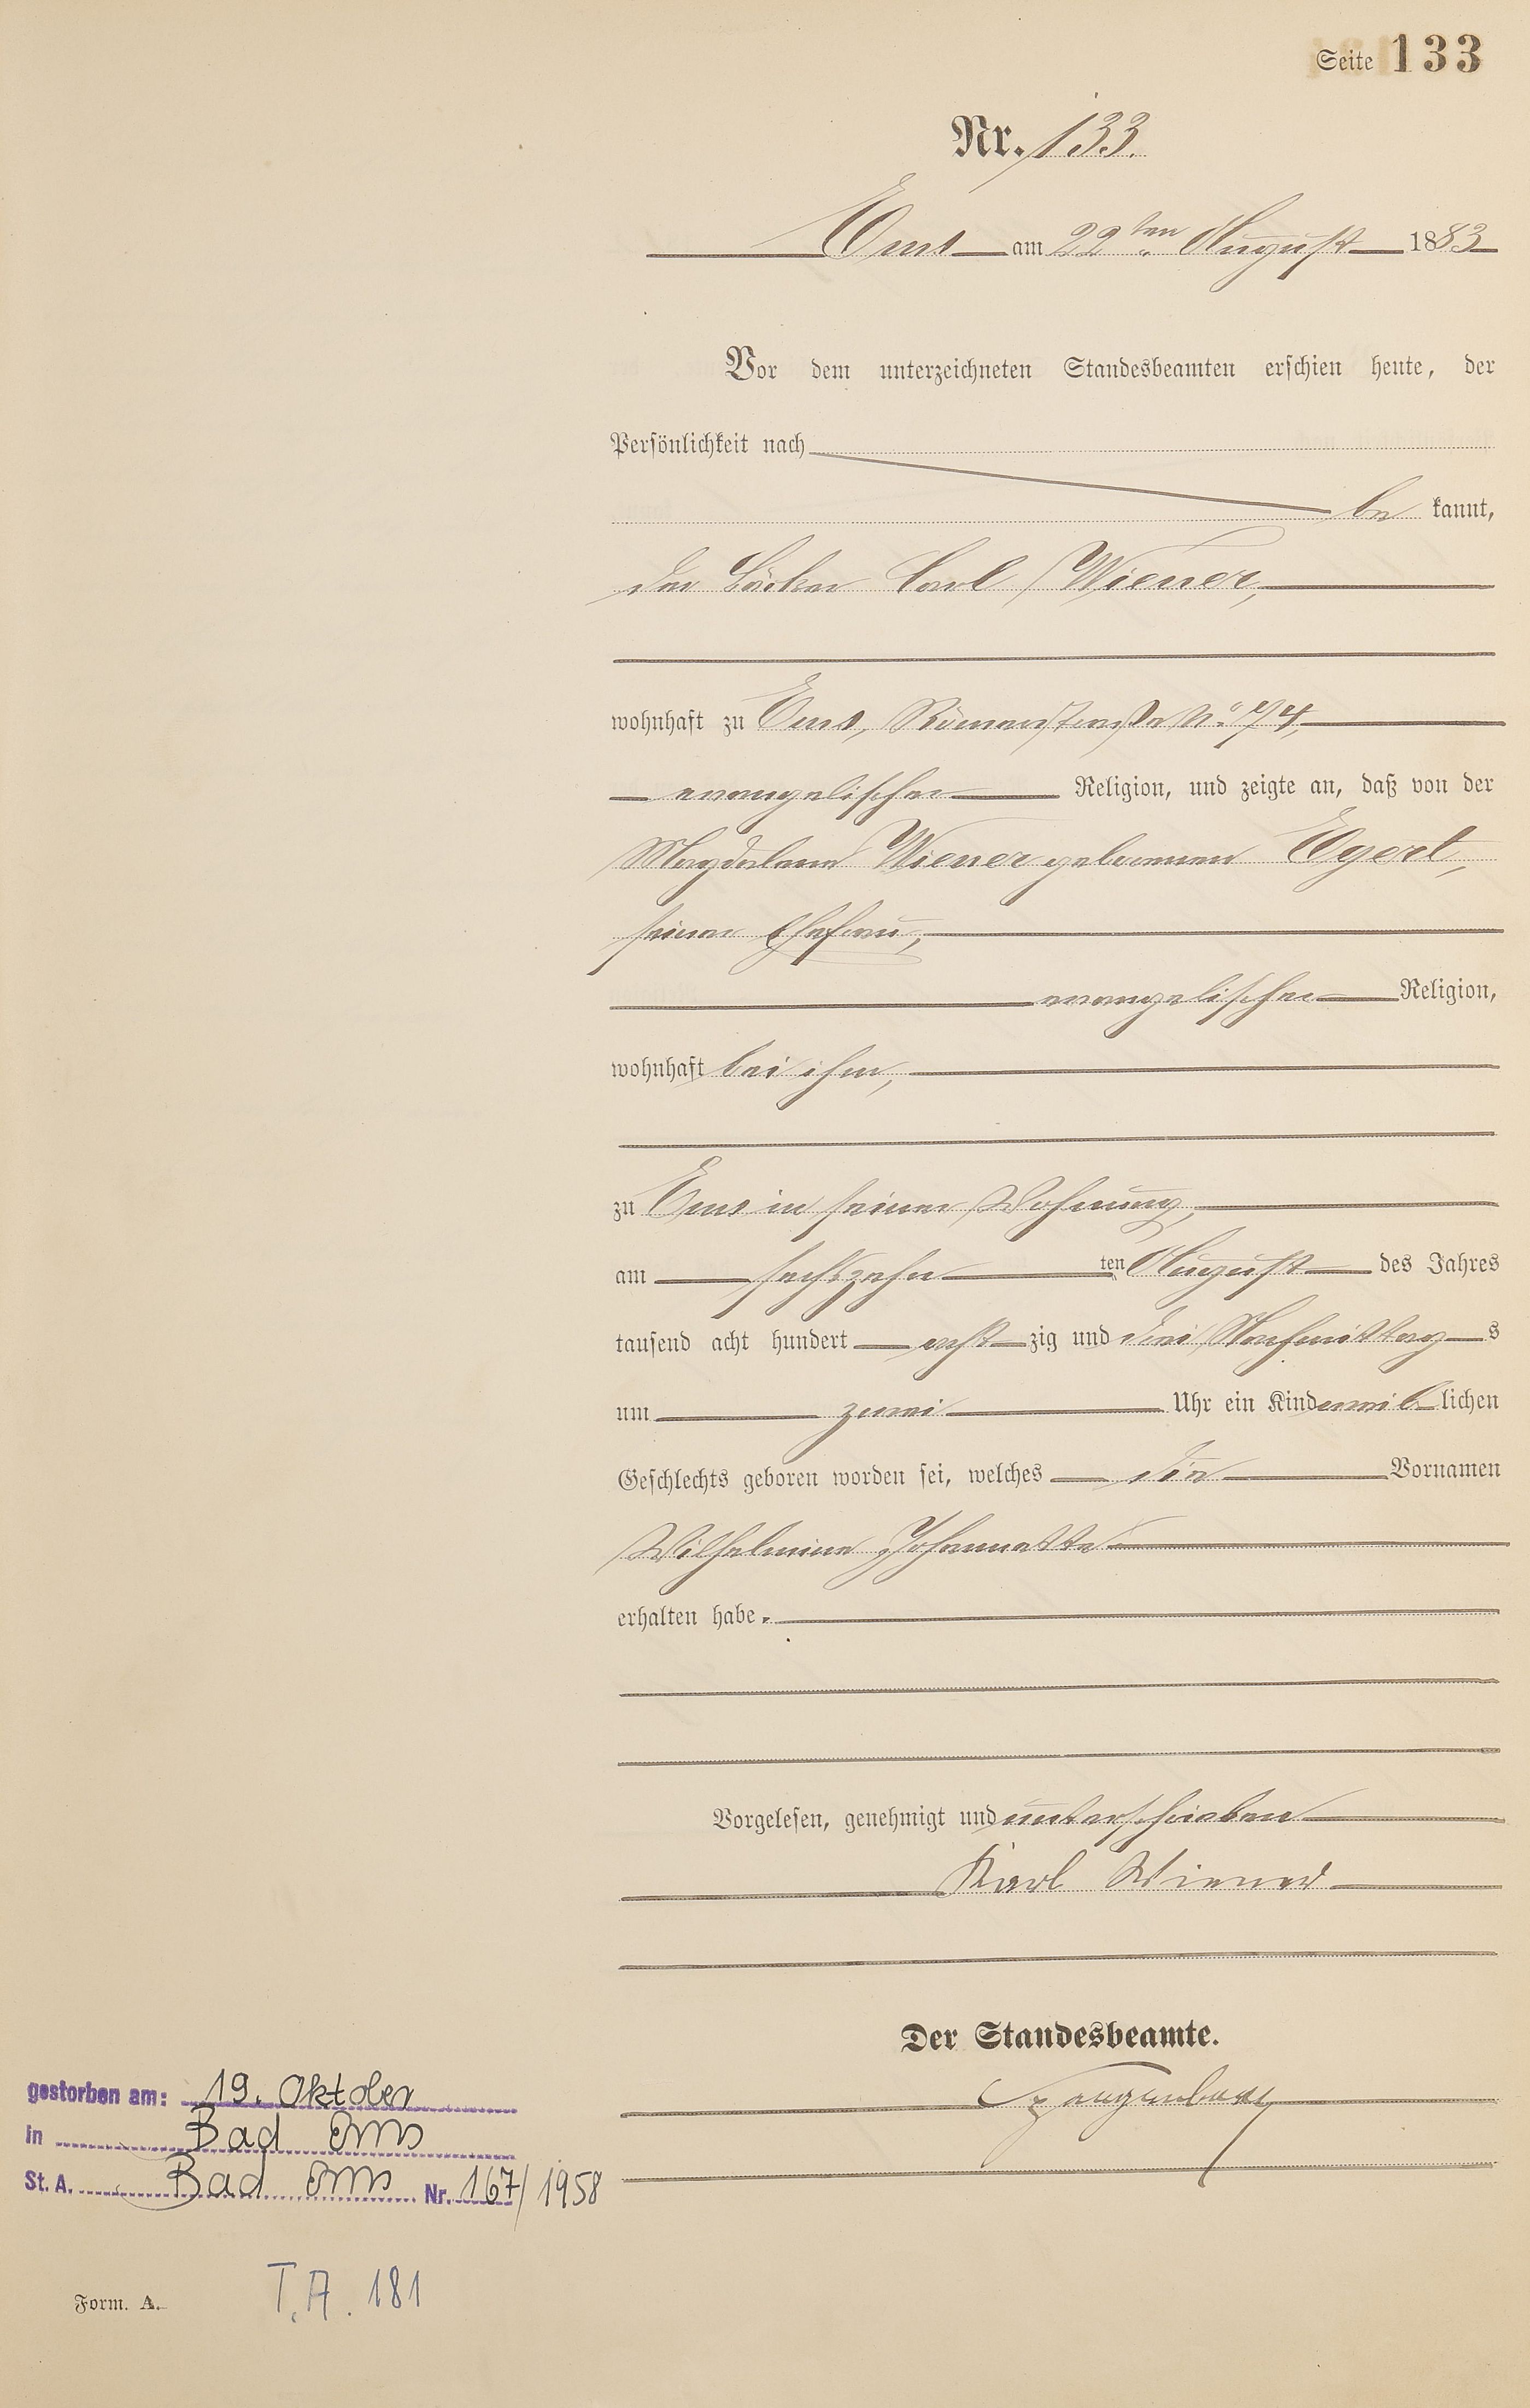 Seite 133
Nr. 133.
Ems am 22ten August 1883
Vor dem unterzeichneten Standesbeamten erschien heute, der
Persönlichkeit nach
be kannt,
der Bäcker Carl Wiener,
wohnhaft zu Ems, Römerstraße No 74,
evangelischer Religion, und zeigte an, daß von der
Magdalena Wiener geborenen Egert,
seiner Ehefrau,
evangelischer Religion,
wohnhaft bei ihm,
zu Ems in seiner Wohnung,
am sechszehn ten August des Jahres
tausend acht hundert acht zig und drei Nachmittag s
um zwei Uhr ein Kind weib lichen
Geschlechts geboren worden sei, welches die Vornamen
Wilhelmine Johannette
erhalten habe.
Vorgelesen, genehmigt und unterschrieben
Karl Wiener
Der Standesbeamte.
gestorben am: 19. Oktober
in Bad Ems
St. A. Bad Ems Nr. 167/1958
Form. A.
T.A. 181